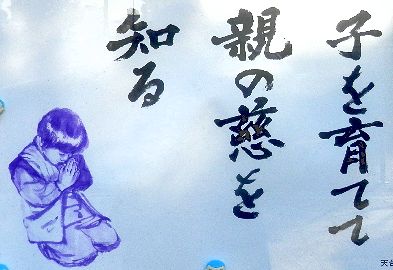 子を育てて
親の慈を
知る
天台